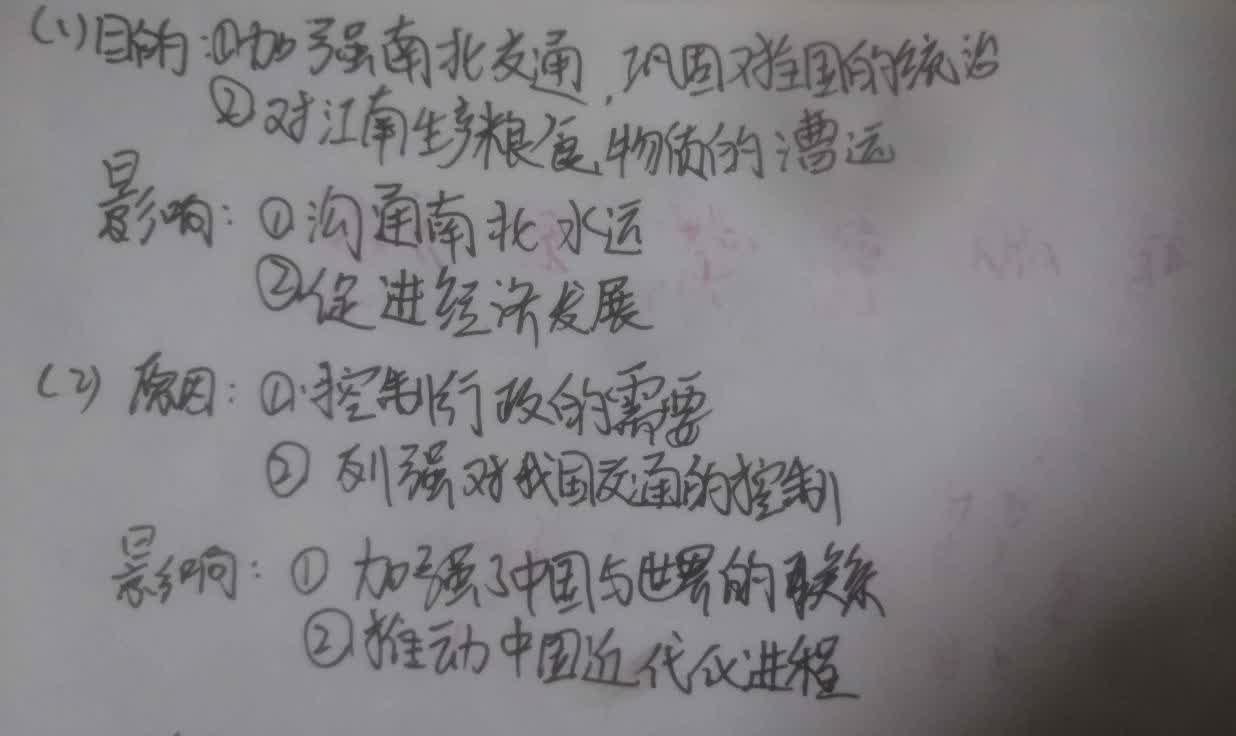 (1)目的:①加强南北交通,巩固对全国的统治
②对江南生产粮食、物质的漕运
影响:①沟通南北水运
②促进经济发展
(2)原因:①控制行政的需要
②列强对我国交通的控制
影响:①加强了中国与世界的联系
②推动中国近代化进程